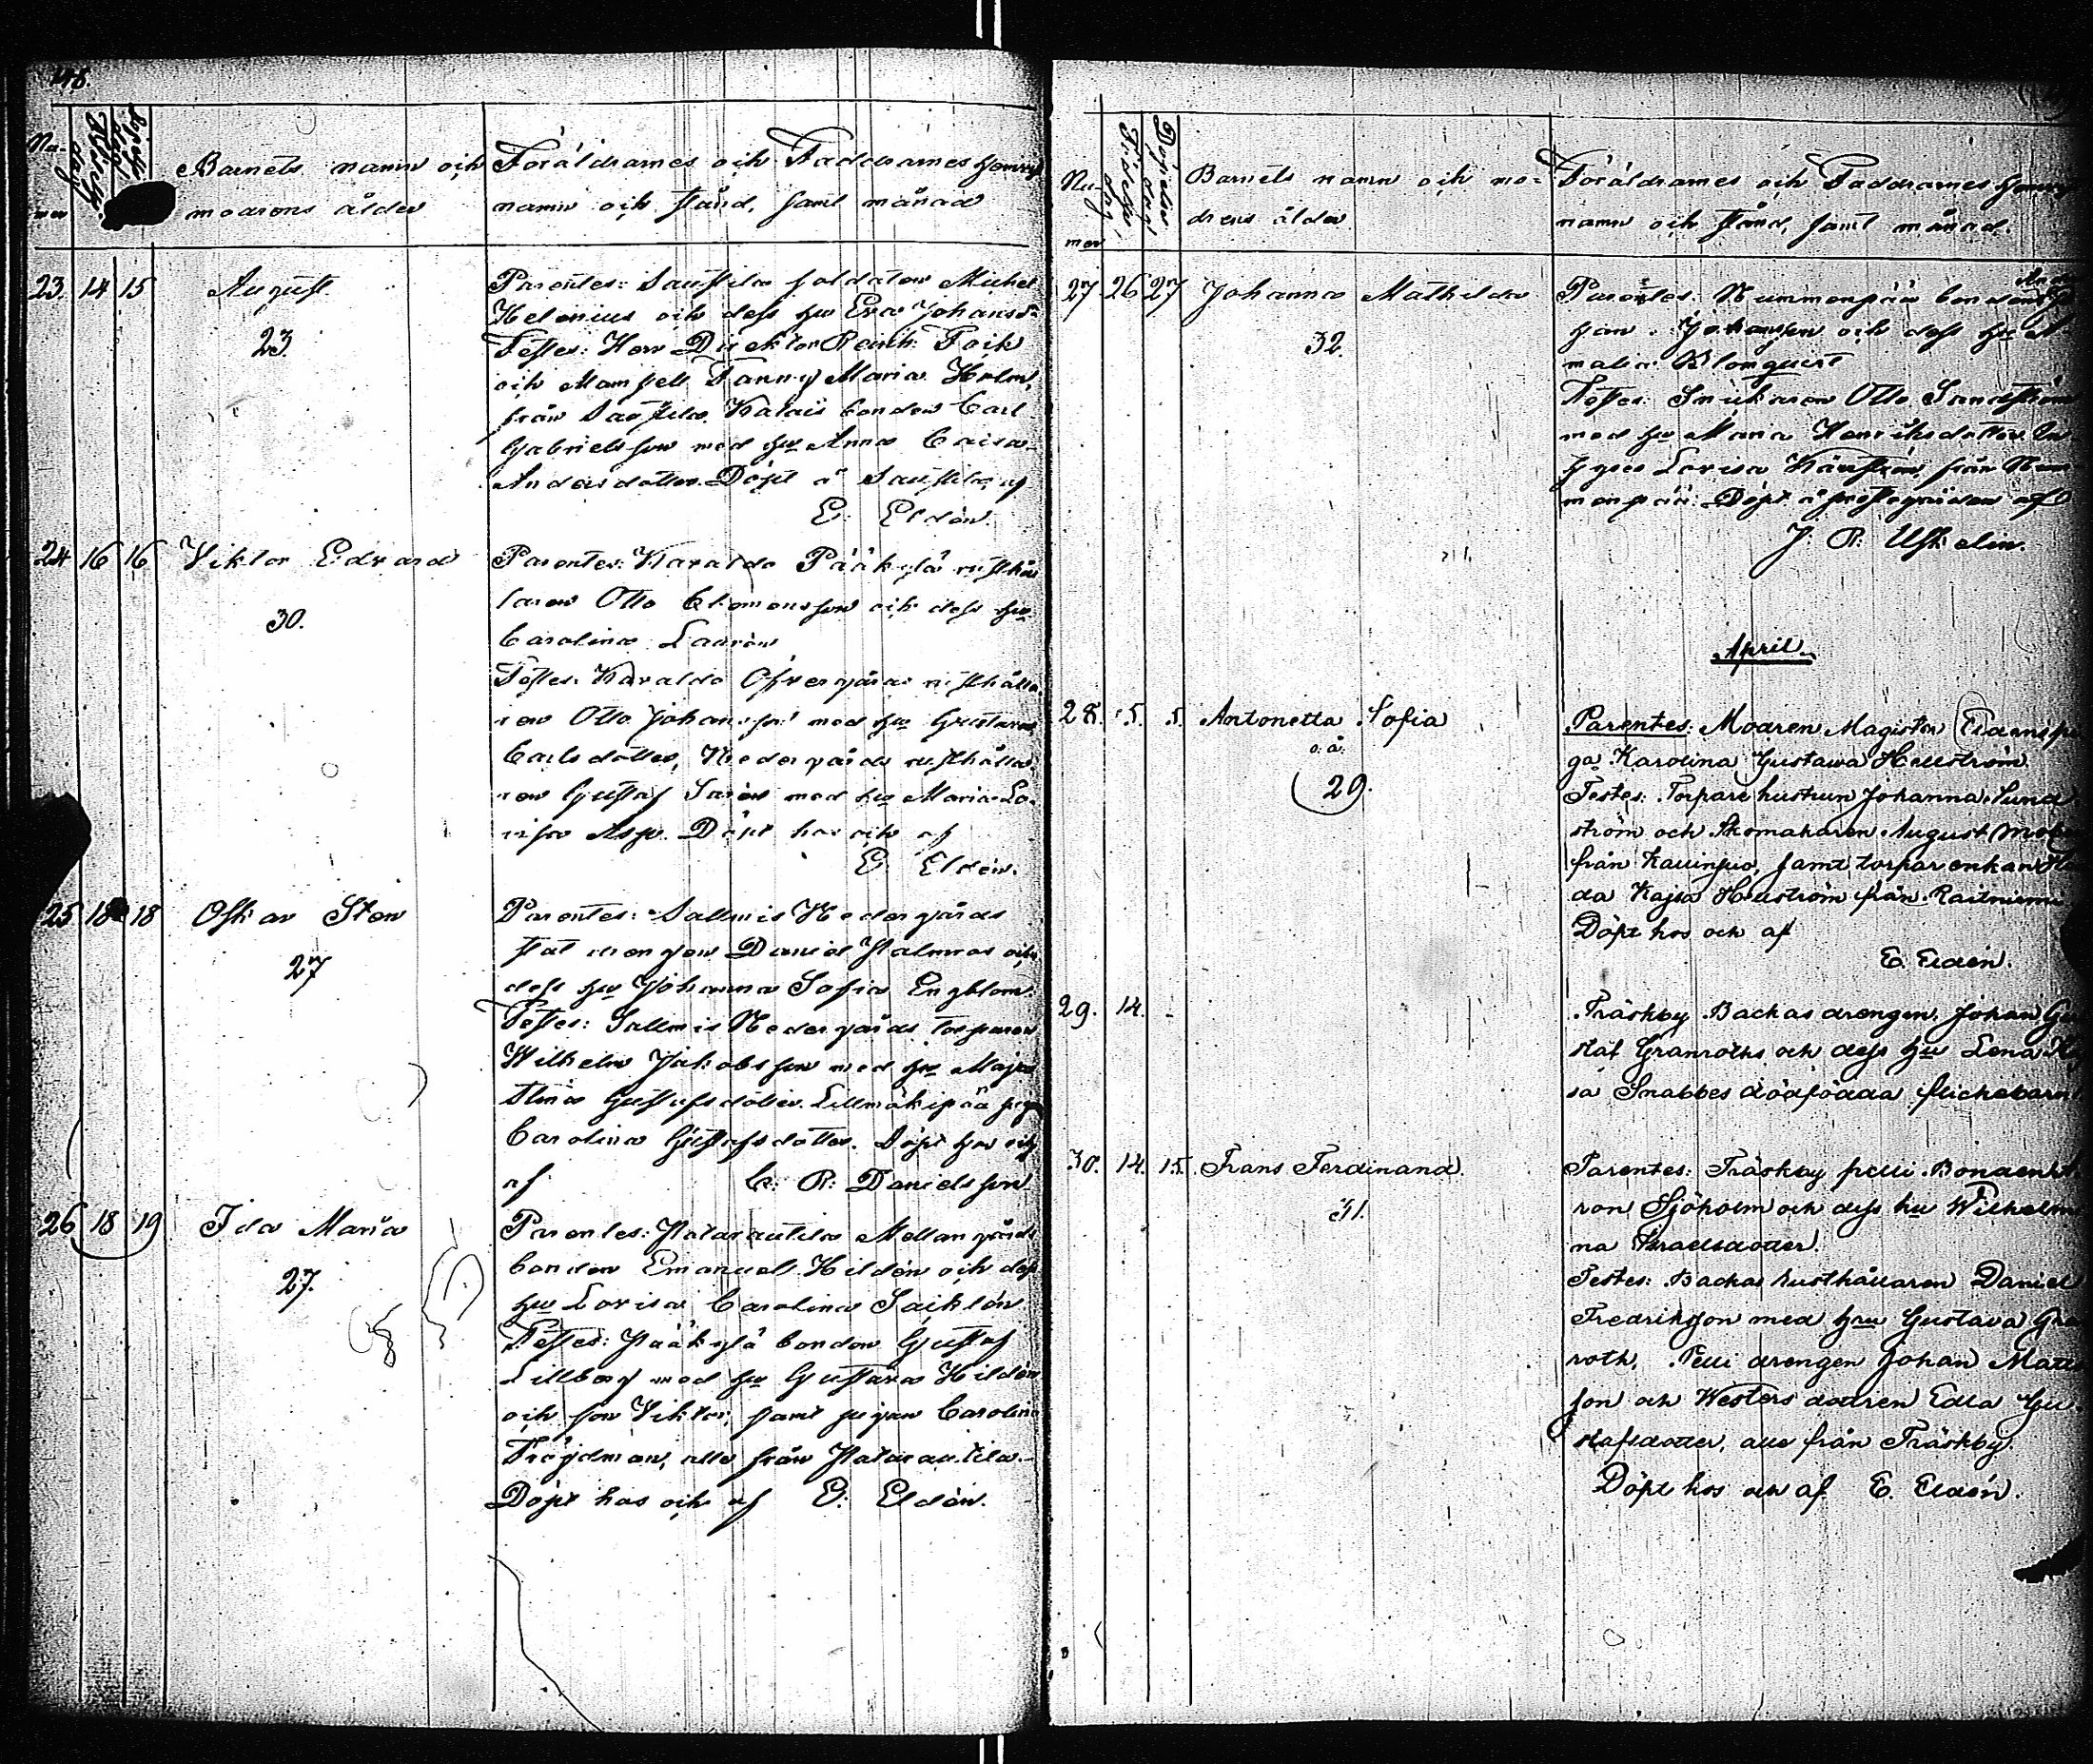 48.
Nu-
mer
Barnets namn och
modrens ålder
Föräldrarnes och Faddrarnes hemvist
namn och stånd, samt månad
23. 14 15 August
23.
Parentes: Saustila soldaten Michel
Helenius och dess hu Eva Johansd:
Testes: Herr Direktor Reinh:
och Mamsell Fanny Maria Holm,
från Saustila, bonden Carl
Gabrielsson med hu Anna Caisa
Andersdotter. Döpt å Saustila, af
E: Eldén.
24 16 16 Viktor Edvard
30.
Parentes: Karaldo Pääkylä rusthål
laren Otto Clemensson och dess hu
Carolina Laurén
Testes: Karaldo Öfvergårds rusthålla
ren Otto Johansson med hu Gustava
Carlsdotter, Nedergårds rusthålla-
ren Gustaf med hu Maria Lo-
visa Asp. Döpt hos och af
E: Eldén.
25 18 18 Oskar Sten
27
Parentes: Sallmis Nedergårds
statdrengen Daniel Palmros och
dess hu Johanna Sofia Engblom.
Testes: Sallmis Nedergårds torparen
Wilhelm Jakobsson med hu Maja
Stina Gustafsdotter. Lillmäkipää pig
Carolina Gustafsdotter. Döpt hos och
af C: R: Danielsson
26 18 19 Ida Maria
27.
Parentes: Patarautila Mellangårds
bonden Emanuel Hildén och dess
hu Lovisa Carolina
Testes: Pääkylä bonden Gustaf
Lillberg med hu Gustava Hildén
och son Viktor, samt pigan Carolina
Fröjdman, alla från Patarautila.
Döpt hos och af E: Eldén.
Nu-
mer
Födelse
dag
Döpelse
dag
Barnets namn och mo-
drens ålder
Föräldrarnes och Faddrarnes hemvist
namn och stånd, samt månad.
27 26 27 Johanna Mathilda
32.
Parentes: Nummenpää bonden
Johansson och dess hu A
malia Blomquist
Testes: Snickaren Otto Sandström
med hu Maria Henriksdotter
Lovisa från Num
menpää. Döpt å prestegården af
J: R: Uschelin.
April
28. 5. 5. Antonetta Sofia
o. ä.
29.
Parentes: Moaren Magister pi
ga Karolina Gustawa Hellström.
Testes: Torpare hustrun Johanna Sund
ström och Skomakaren August
från samt torparenkan
da Kajsa Hellström från Raitniemi
Döpt hos och af
E. Eldén.
29. 14. - Träskby Backas drengen Johan Gu
staf Granroths och dess hu Lena Kaj
sa Snabbes dödfödda flickebarn
30. 14. 15. Frans Ferdinand.
31.
Parentes: Träskby Pelli Bonden
ron Sjöholm och dess hu Wilhelmi
na Israelsdotter.
Testes: Backas rusthållaren Daniel
Fredriksson med hru Gustava Gran
roth, Pelli drengen Johan Matts
son och Westers dottren Edla Gu-
stafsdotter, alle från Träskby.
Döpt hos och af E. Eldén.